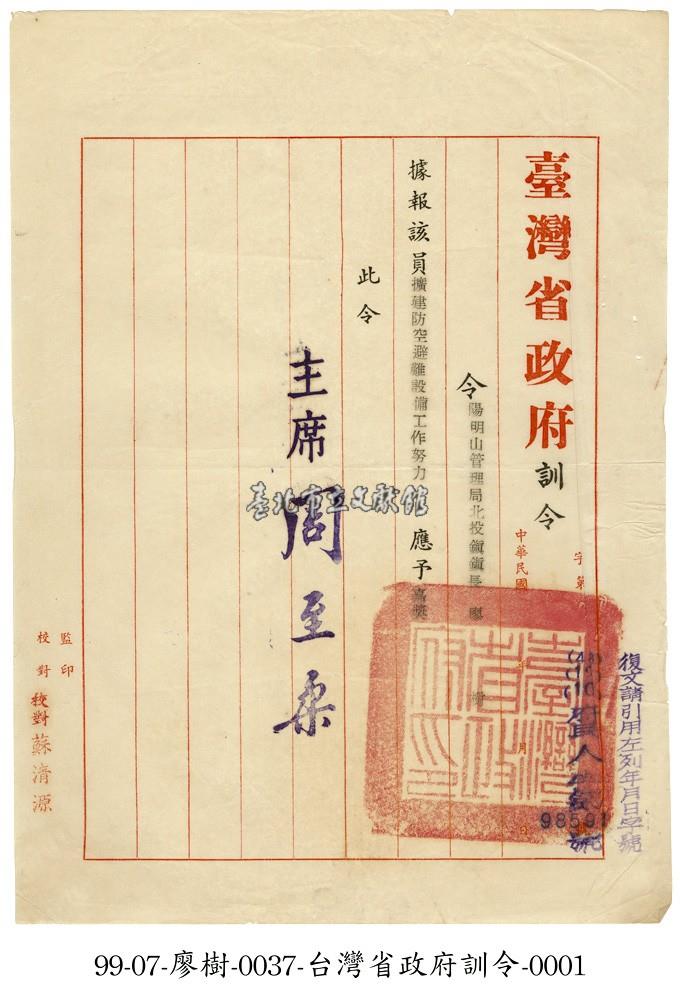 臺灣省政府訓令
字第
中華民國 年 月 日
98591
號
復文請引用左列年月日字號
令陽明山管理局北投鎮鎮長廖樹
據報該員擴建防空避難設備工作努力應予嘉獎
此令
主席周至柔
臺北市立文獻館
監印
校對
校對蘇清源
99-07-廖樹-0037-台灣省政府訓令-0001